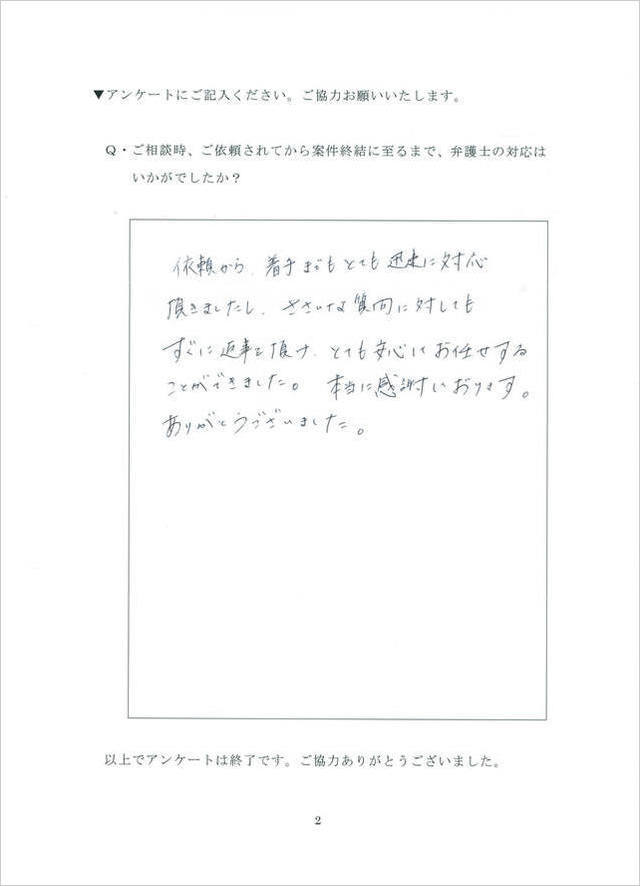 ▼アンケートにご記入ください。ご協力お願いいたします。
Q・ご相談時、ご依頼されてから案件終結に至るまで、弁護士の対応は
いかがでしたか?
依頼から、着手までもとても迅速に対応
頂きましたし、ささいな質問に対しても
すぐに返事を頂け、とても安心してお任せする
ことができました。本当に感謝しております。
ありがとうございました。
以上でアンケートは終了です。ご協力ありがとうございました。
2